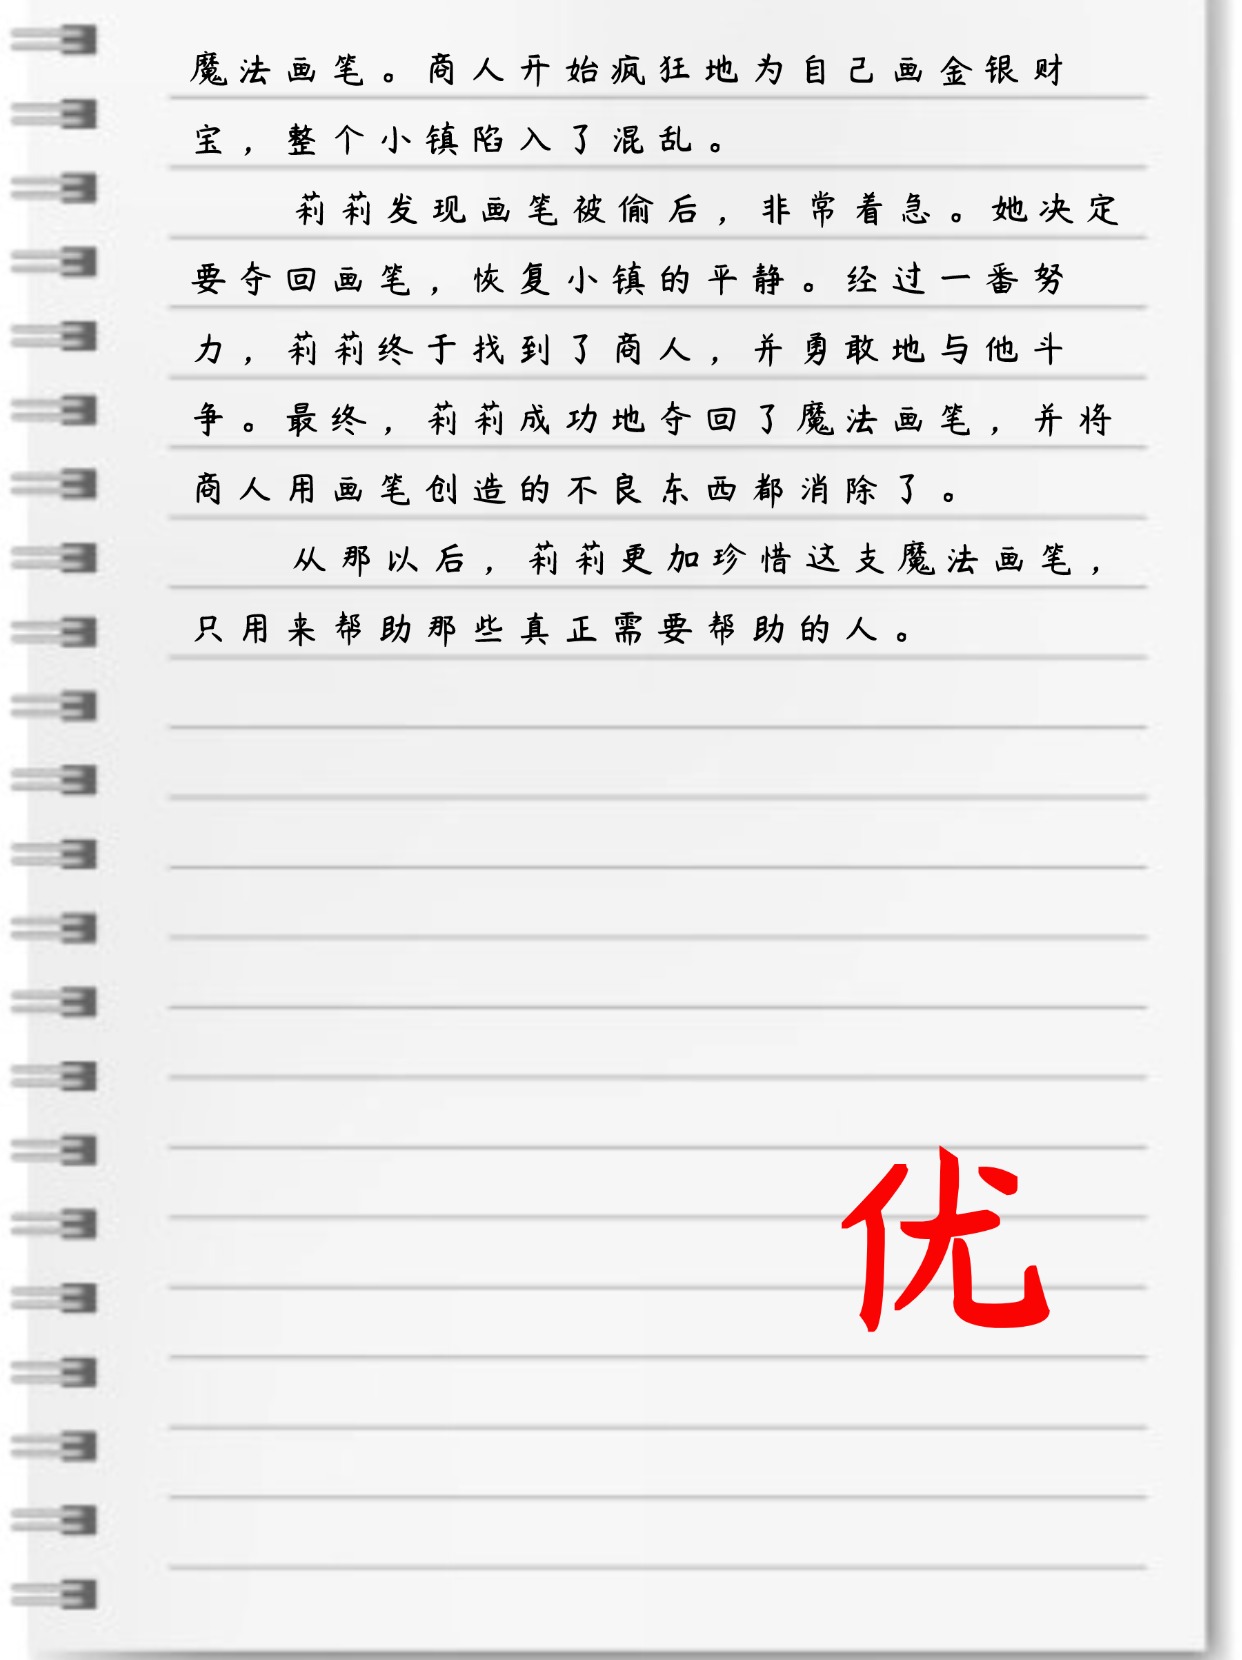 魔法画笔。商人开始疯狂地为自己画金银财
宝，整个小镇陷入了混乱。
莉莉发现画笔被偷后，非常着急。她决定
要夺回画笔，恢复小镇的平静。经过一番努
力，莉莉终于找到了商人，并勇敢地与他斗
争。最终，莉莉成功地夺回了魔法画笔，并将
商人用画笔创造的不良东西都消除了。
从那以后，莉莉更加珍惜这支魔法画笔，
只用来帮助那些真正需要帮助的人。
优